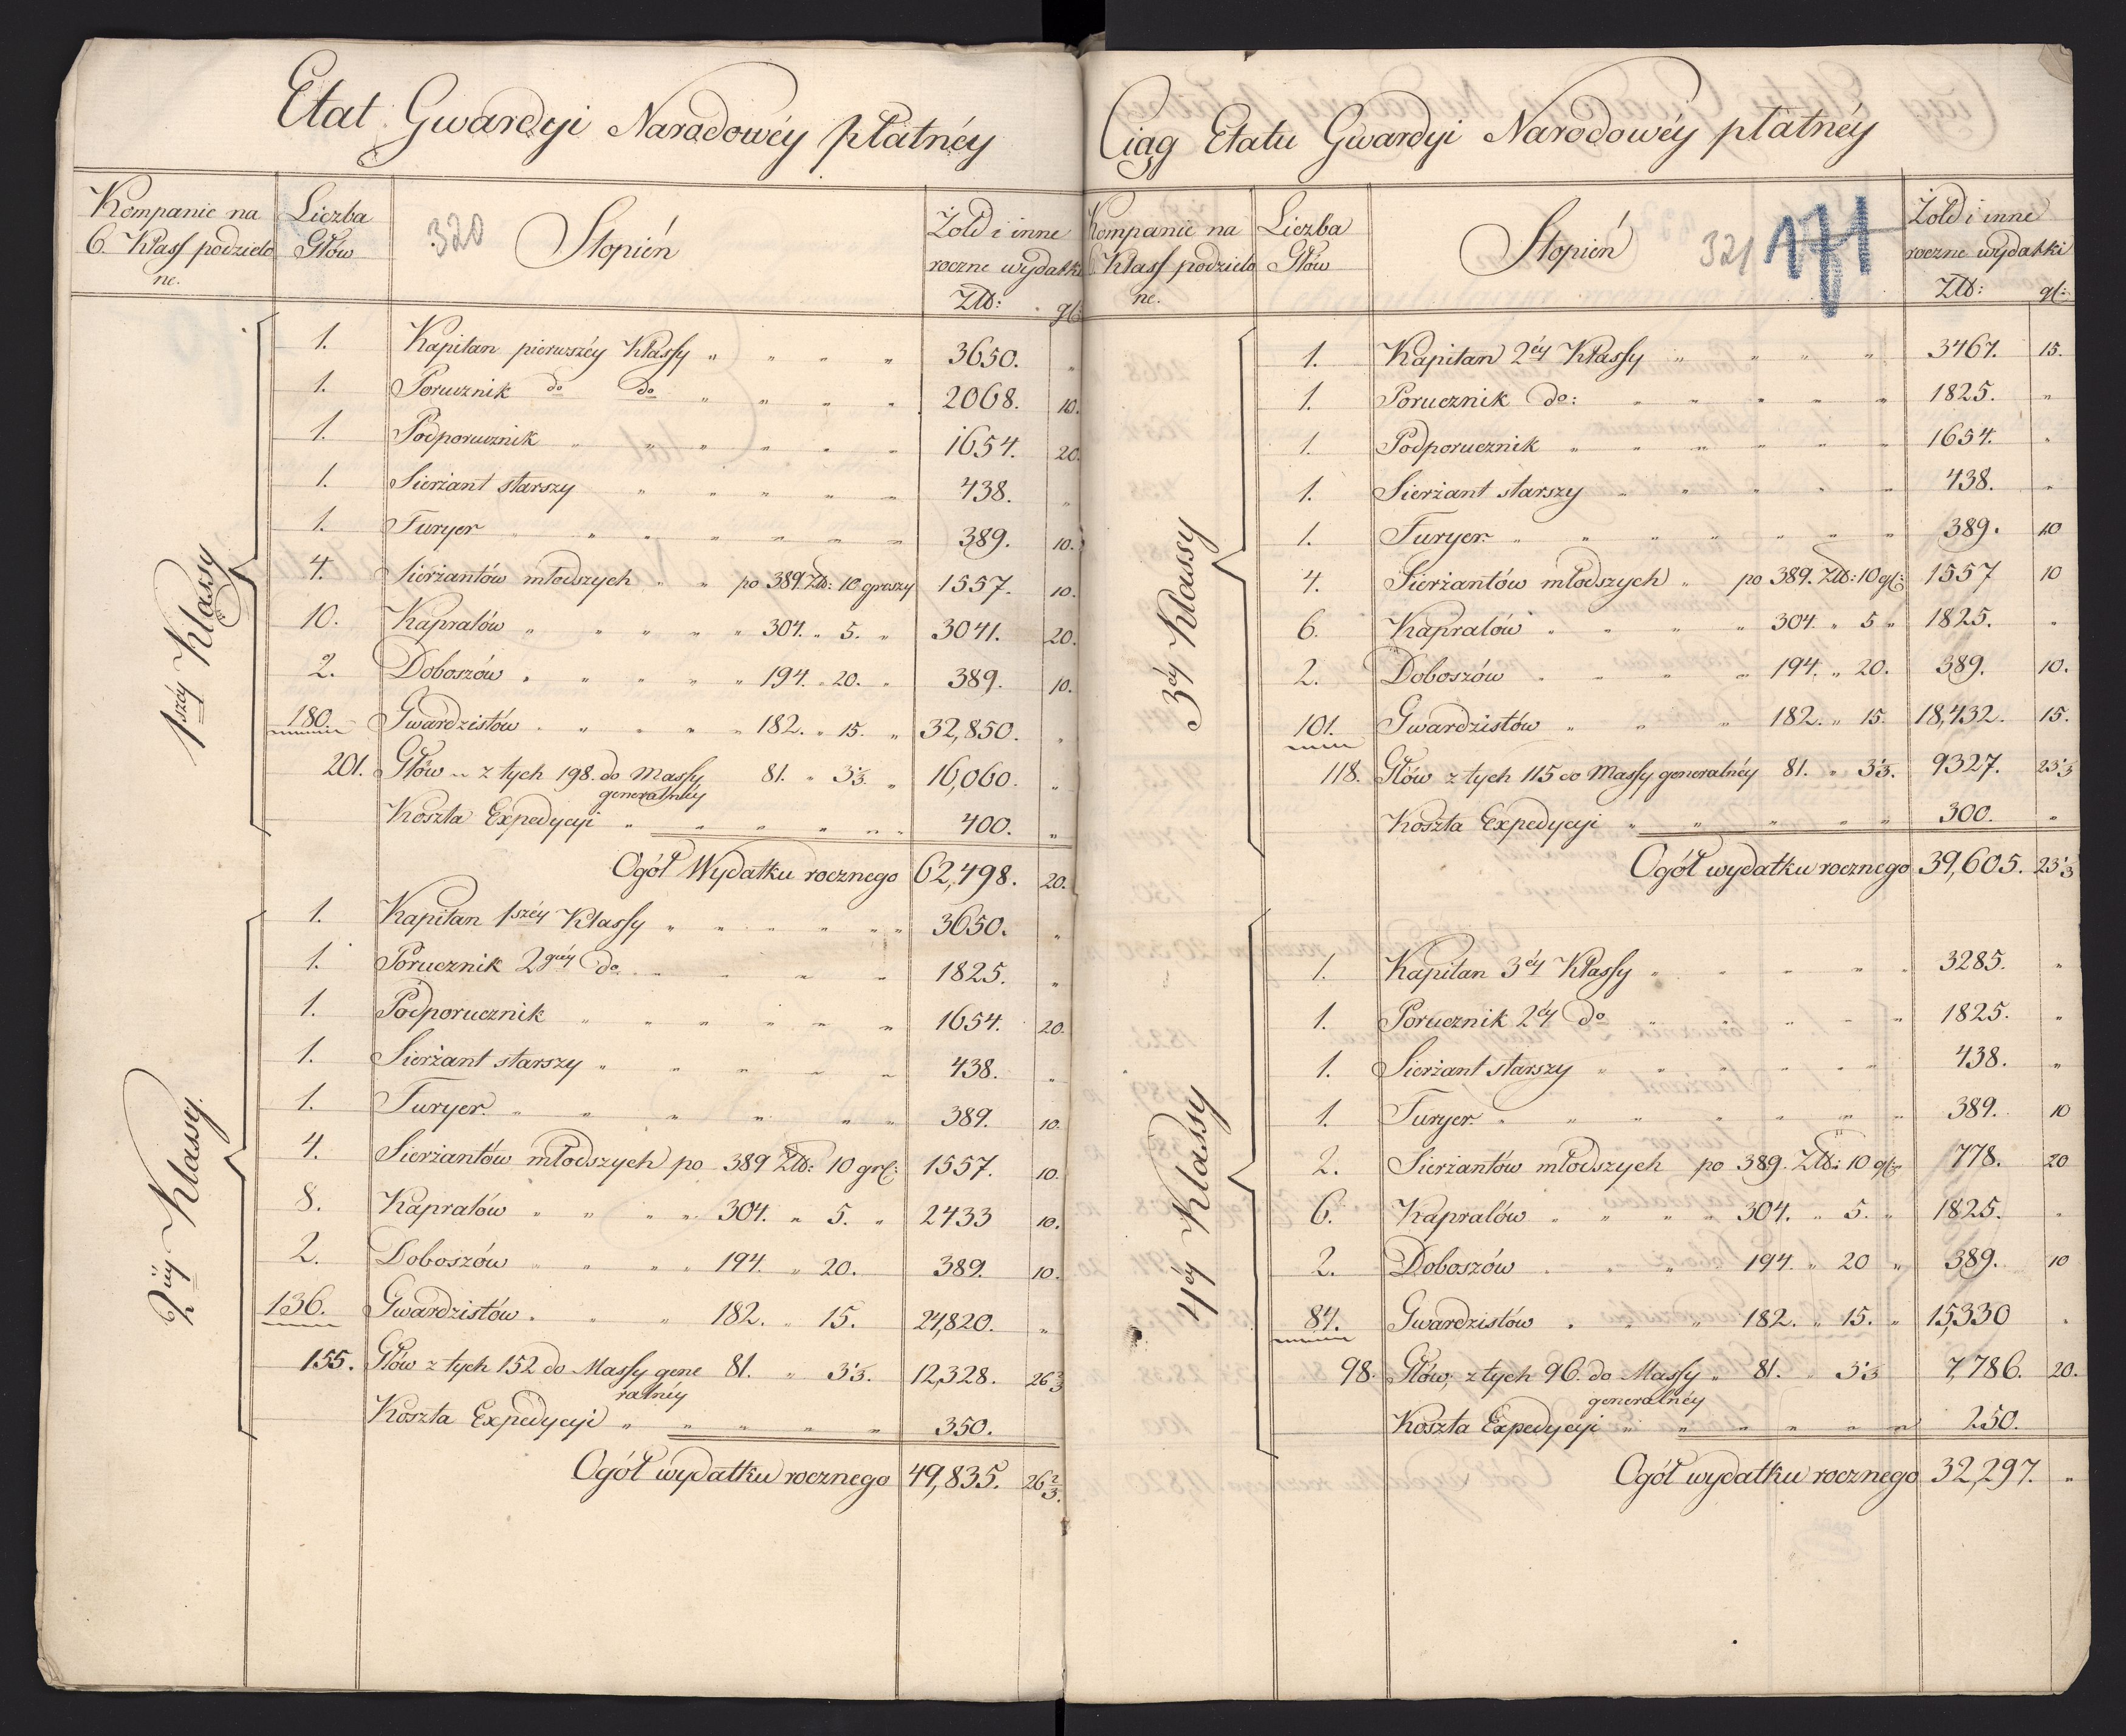 Etat Gwardyi Narodowéy płatnéy
Kompanie na 6. Klass podzielo ne.
Liczba Głów
320
Stopień
Żołd i inne roczne wydatki
Złt: gl:
1széy Klassy
1. Kapitan pierwszéy Klassy " " " " 3650. "
1. Porucznik do do " " " " 2068. 10.
1. Podporucznik " " " " " 1654. 20.
1. Sierżant starszy " " " " " 438. "
1. Furyer " " " " " " 389. 10.
4. Sierżantów młodszych " " po 389. Złt: 10 groszy 1557. 10.
10. Kapralów " " " " " 304. " 5. " 3041. 20.
2. Doboszów " " " " " 194. " 20. " 389. 10.
180. Gwardzistów " " " " " 182. " 15. " 32,850. "
201. Głów " z tych 198. do Massy generalnéy 81. " 3⅓. " 16,060. "
Koszta Expedycyi " " " " " " 400. "
Ogół Wydatku rocznego 62,498. 20.
2giéy Klassy.
1. Kapitan 1széy Klassy " " " " " " 3650. "
1. Porucznik 2giéy do " " " " 1825. "
1. Podporucznik " " " " " " 1654. 20.
1. Sierżant starszy " " " " " 438. "
1. Furyer. " " " " " " 389. 10.
4. Sierżantów młodszych po 389 Złt: 10 grl: 1557. 10.
8. Kapralów " " " " 304. " 5. " 2433 10.
2. Doboszów " " " " 194. " 20. 389. 10.
136. Gwardzistów " " " 182. " 15. 24,820. "
155. Głów z tych 152 do Massy gene ralnéy 81. " 3⅓. 12,328. 26⅔
Koszta Expedycyi " " " " " 350.
Ogół wydatku rocznego 49,835. 26⅔.
Ciąg Etatu Gwardyi Narodowéy płatnéy
Kompanie na 6 Klass podzielo ne.
Liczba Głów
Stopień
321
171
Żołd i inne roczne wydatki
Złt: gl:
3éy Klassy
1. Kapitan 2éy Klassy " " " " 3467. 15.
1. Porucznik do: " " " " " 1825. "
1. Podporucznik " " " " " " 1654. "
1. Sierżant starszy " " " " " 438. "
1. Furyer. " " " " " " " 389. 10
4. Sierżantów młodszych " po 389. Złt: 10 gl: 1557 10
6. Kapralów " " " " 304. " 5 " 1825. "
2. Doboszów " " " " 194. " 20. 389. 10.
101. Gwardzistów " " " 182. " 15. 18,432. 15.
118. Głów z tych 115 do Massy generalnéy 81. " 3⅓. 9327. 23⅓
Koszta Expedycyi " " " " " 300. "
Ogół wydatku rocznego 39,605. 23⅓
4éy Klassy
1. Kapitan 3éy Klassy " " " " " 3285. "
1. Porucznik 2éy do " " " " " 1825. "
1. Sierżant starszy " " " " " " 438. "
1. Furyer. " " " " " " " 389. 10
2. Sierżantów młodszych po 389. Złt: 10 gl: 778. 20
6. Kapralów " " " " 304. " 5. " 1825. "
2. Doboszów " " " 194. " 20 " 389. 10
84. Gwardzistów " " " 182. " 15. " 15,330 "
98. Głów, z tych 96. do Massy generalnéy " 81. " 3⅓ 7,786. 20.
Koszta Expedycyi " " " " " " 250.
Ogół wydatku rocznego 32,297. "